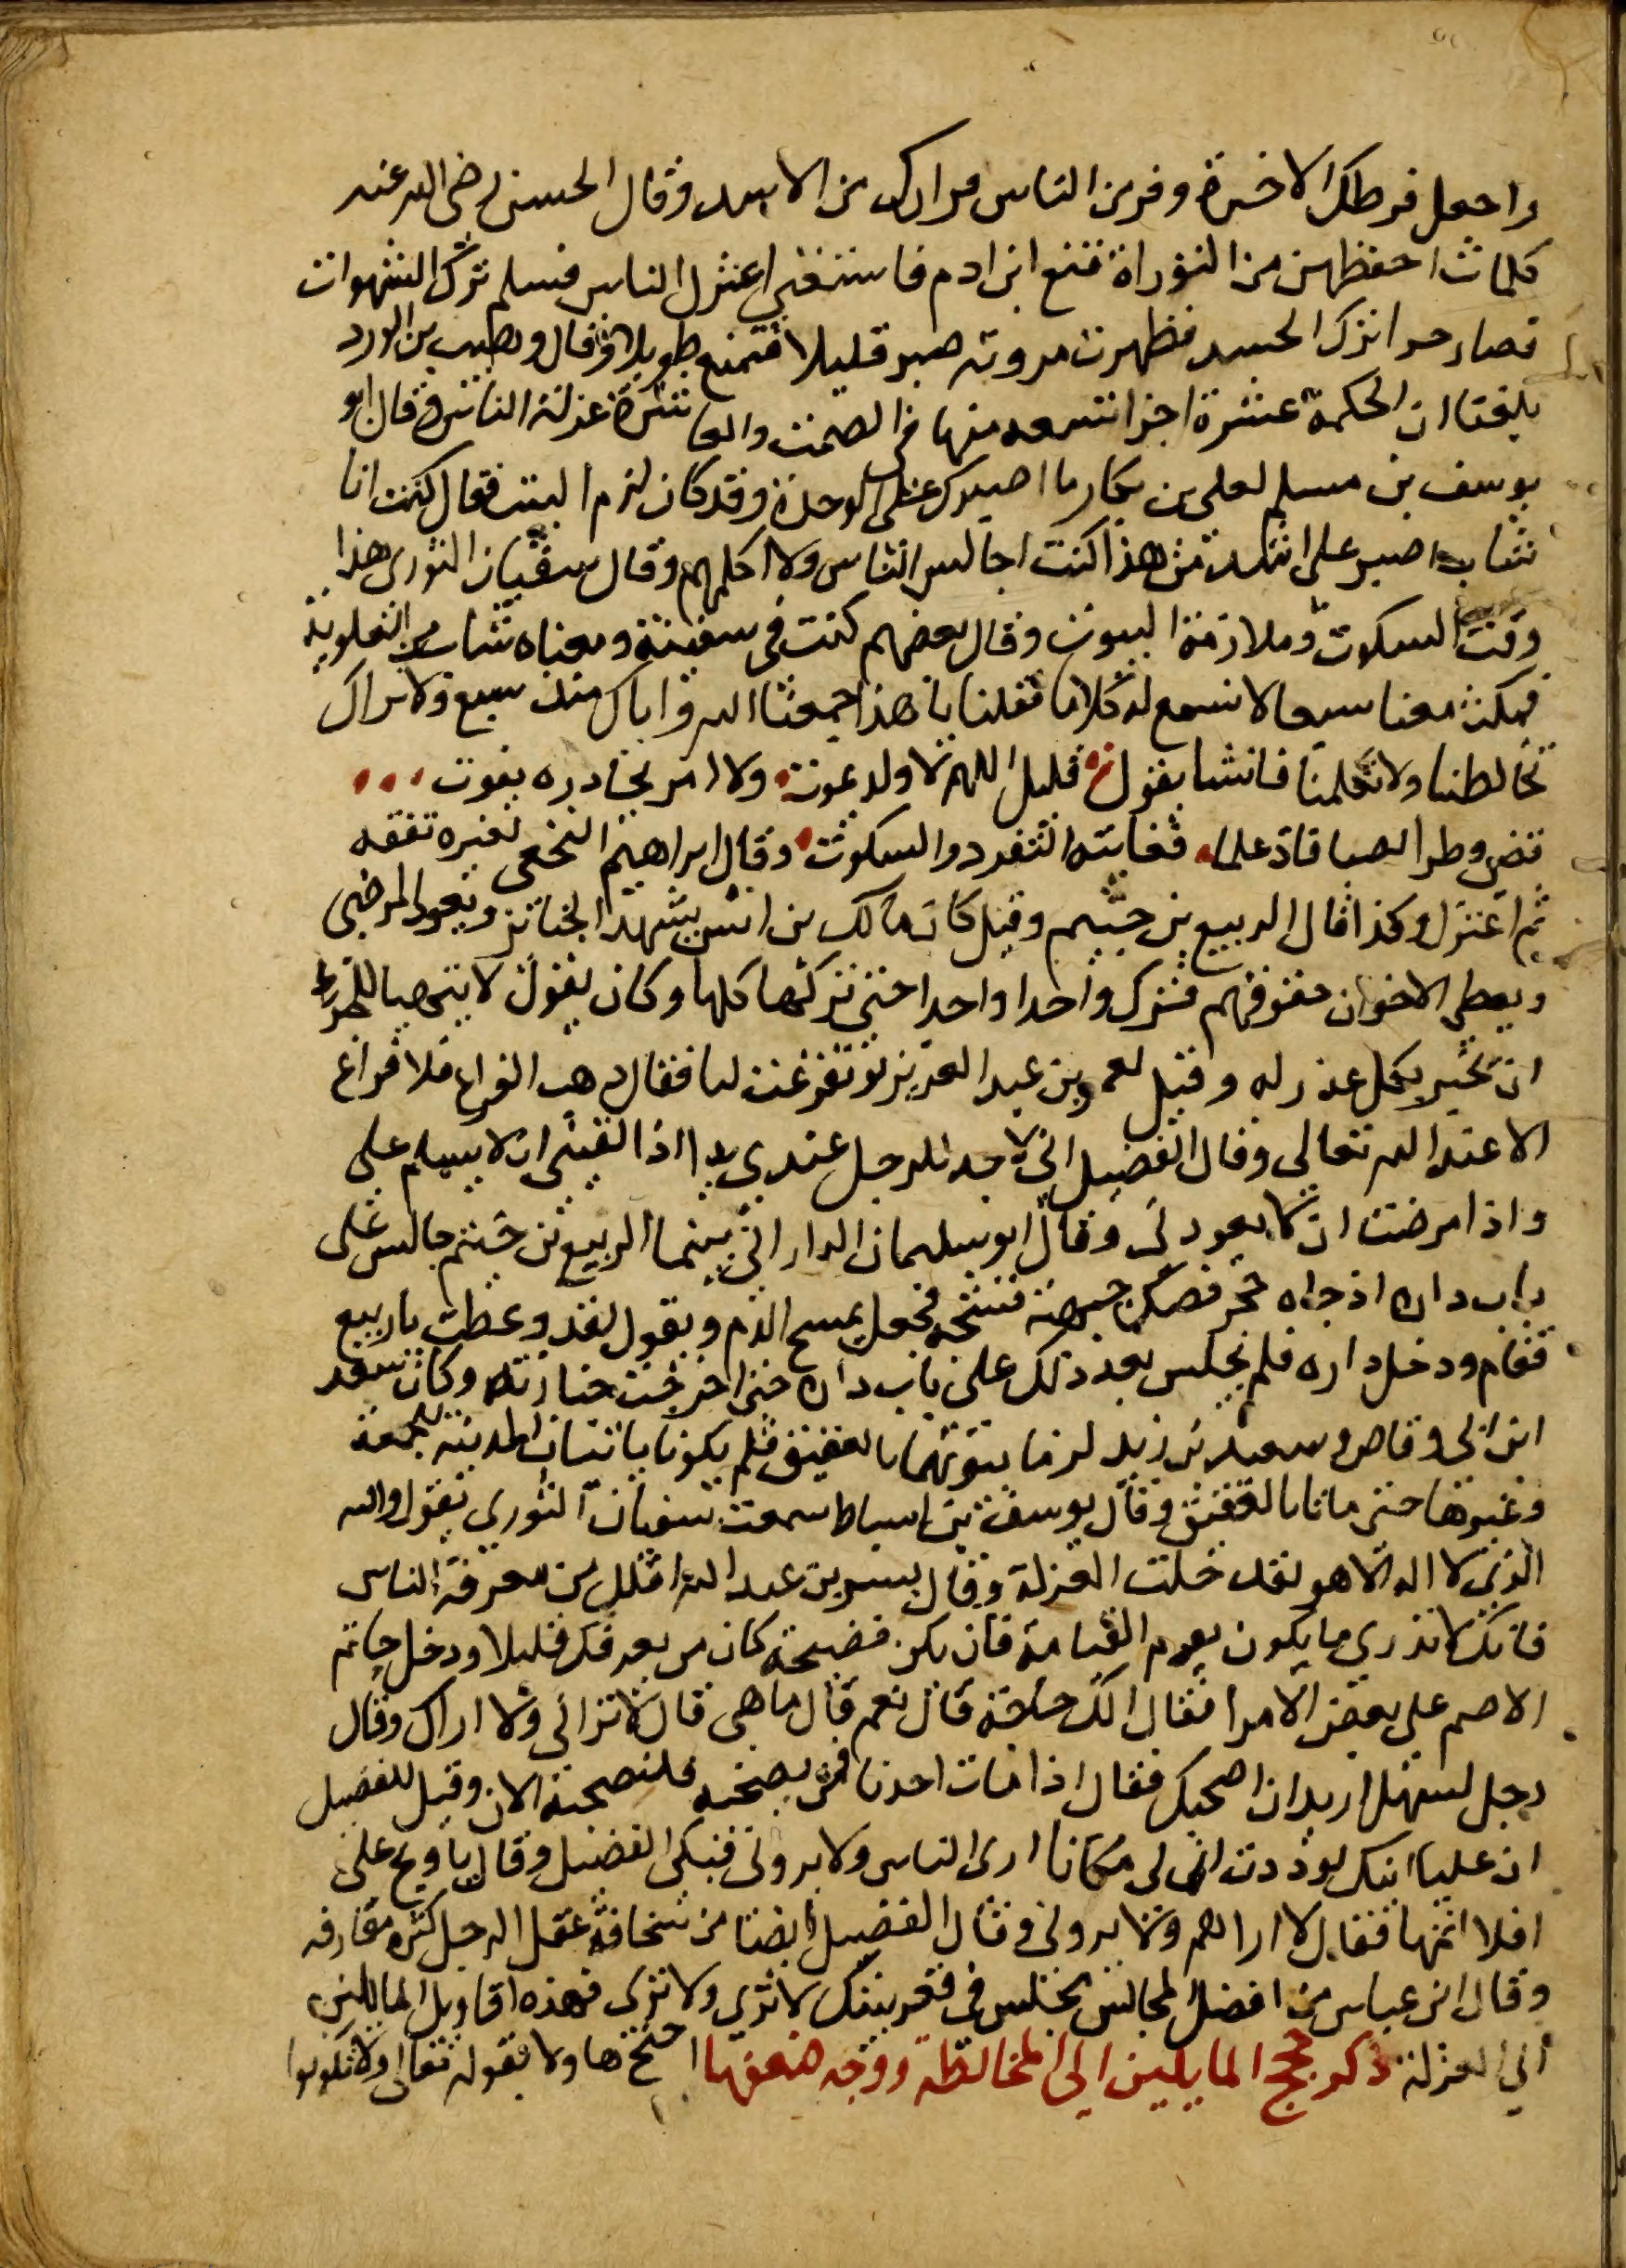 واجعل فطرك الاخرة وفر من الناس فرارك من الاسد وقال الحسن رضى الله عنه
كلمات احفظهن من التوراة قنع ابن ادم فاستغنى اعتزل الناس فسلم ترك الشهوات
فصار حرا ترك الحسد فظهرت مروته صبر قليلا فتمتع طويلا وقال وهيب بن الورد
بلغنا ان الحكمة عشرة اجزا تسعه منها فى الصمت والعاشرة عزلة الناس وقال
يوسف بن مسلم لعلى بن بكار ما اصبرك على الوحدة وقد كان لزم البيت فقال كنت انا
شاب اصبر على اشد من هذا كنت اجالس الناس ولا اكلمهم وقال سفيان الثورى هذا
وقت السكوت وملازمة البيوت وقال بعضهم كنت فى سفينة ومعناه شاب من العلوية
فمكث معنا سبعا لا نسمع له كلاما فقلنا يا هذا جمعنا الله واياك منذ سبع ولا نراك
تخالطنا ولا تكلمنا فانشا يقول قليل الهم لا ولد يموت ولا امر يحاذره يفوت
قضى وطر الصبا فاد علما فغايته التفرد والسكوت وقال ابراهيم النخعى لغيره تفقه
ثم اعتزل وكذا قال الربيع بن خيثم وقيل كان مالك بن انس يشهد الجنائز ويعود المرضى
ويعطى الاخوان حقوقهم فترك واحدا واحدا حتى تركها كلها وكان يقول لا يتهيا للمرء
ان يخبر بكل عذر له وقيل لعمر بن عبد العزيز لو تفرغت لنا فقال ذهب الفراغ فلا فراغ
الا عند الله تعالى وقال الفضيل انى لاجد للرجل عندى يدا اذا لقينى ان لا يسلم على
واذا مرضت ان لا يعودنى وقال ابو سليمان الدارانى بينما الربيع بن خيثم جالس على
باب داره اذ جاه حجر فصك جبهته فشجه فجعل يمسح الدم ويقول لقد وعظت يا ربيع
فقام ودخل داره فلم يجلس بعد ذلك على باب داره حتى اخرجت جنازته وكان سعد
ابن ابى وقاص وسعيد بن زيد لزما بيوتهما بالعقيق فلم يكونا ياتيان المدينة لجمعة
وغيرها حتى ماتا بالعقيق وقال يوسف بن اسباط سمعت سفيان الثورى يقول والله
الذى لا اله الا هو لقد حلت العزلة وقال بشر بن عبد الله اقلل من معرفة الناس
فانك لا تدرى ما يكون يوم القيامة فان يكن فضيحة كان من يعرفك قليلا ودخل حاتم
الاصم على بعض الامرا فقال الك حاجة قال نعم قال ما هى قال لا ترانى ولا اراك وقال
رجل لسهل اريد ان اصحبك فقال اذا مات احدنا فمن يصحبه فلنصحبه الان وقيل للفضيل
ان عليا ابنك يقول لوددت انى فى مكانا ارى الناس ولا يرونى فبكى الفضيل وقال يا ويح على
افلا اتمها فقال لا اراهم ولا يرونى وقال الفضيل ايضا من سخافة عقل الرجل كثرة معارفه
وقال ابن عباس من افضل المجالس مجلس فى قعر بيتك لا ترى ولا ترى فهذه اقاويل المايلين
الى العزلة ذكر حجج المايلين الى المخالطة ووجه ضعفها احتج هاولا بقوله تعالى ولا تكونوا